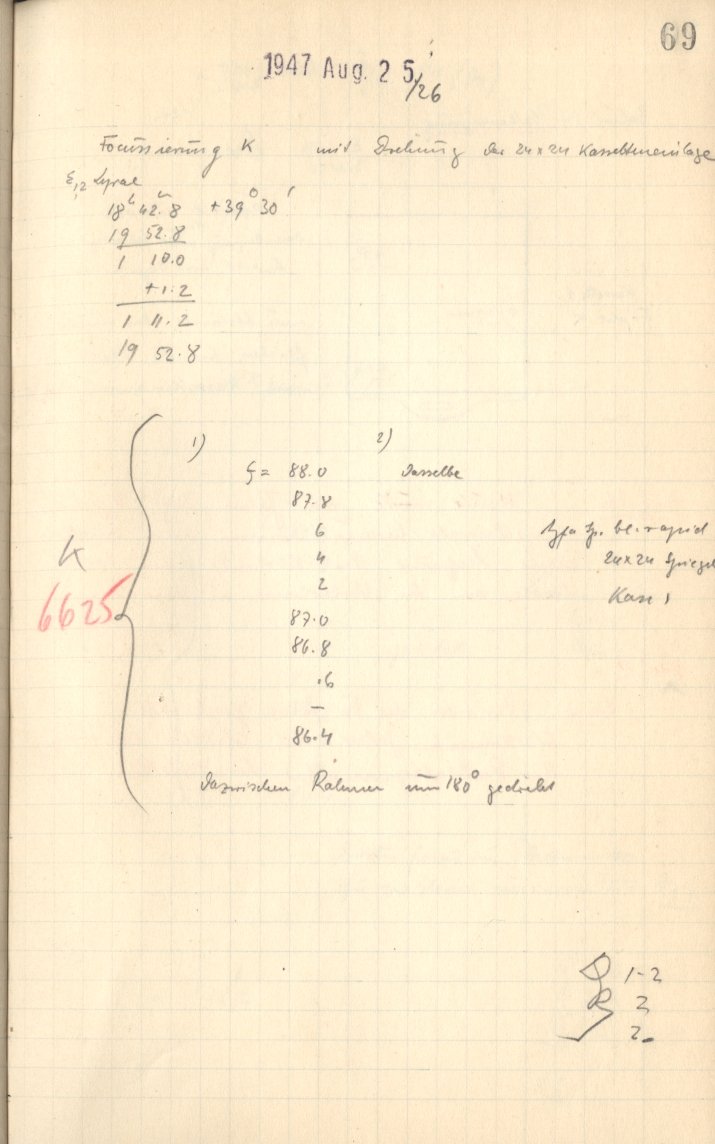 69
1947 Aug. 25/26
Focussierung K mit Drehung der 24x24 Kassetteneinlage
ε1,2 Lyrae
18h 42m.8 +39° 30'
19 52.8
1 10.0
+1.2
1 11.2
19 52.8
1) 2)
ξ = 88.0 Dasselbe
87.8
6
4
2
87.0
86.8
.6
—
86.4
K
6625
Agfa Sp. bl. rapid
24x24 Spiegel
Kass 1
Dazwischen Rahmen um 180° gedreht
1-2
R 2
2.